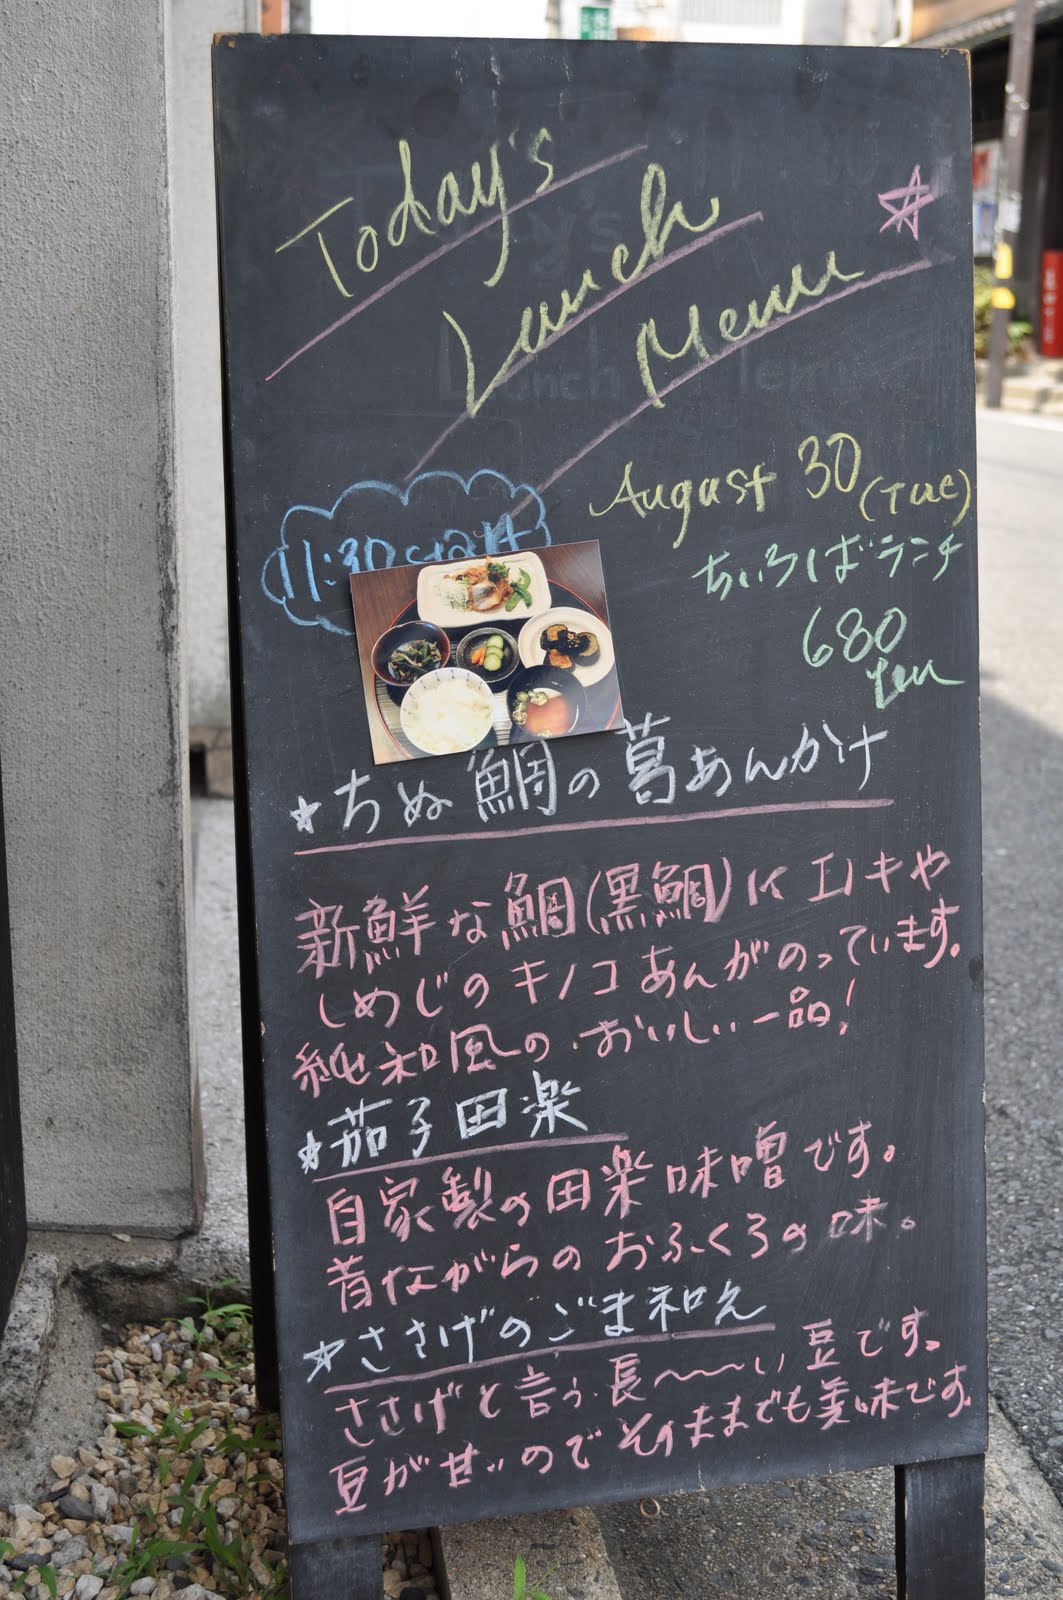 Today's
Lunch
Menu
August 30 (Tue)
11:30 start
ちいろばランチ
680
Yen
ちぬ鯛の葛あんかけ
新鮮な鯛(黒鯛)にエノキや
しめじのキノコあんがのっています。
純和風の、おいしい一品!
茄子田楽
自家製の田楽味噌です。
昔ながらのおふくろの味。
ささげのごま和え
ささげと言う長〜〜い豆です。
豆が甘いのでそのままでも美味です。